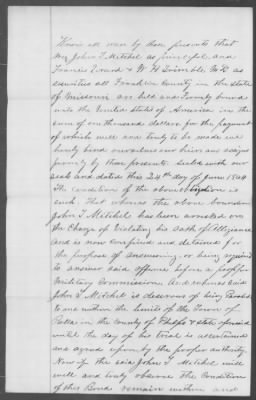 Know all men by these presents that
we John T Mitchel as principal and
Francis Evard & W H Trimble M D as
securities all Franklin County in the state
of Missouri are held and firmly bound
unto the United States of America in the
sum of one thousand dollars for the payment
of which well and truly to be made we
hereby bind ourselves our heirs and assigns
firmly by these presents sealed with our
seals and dated this 24th day of June 1864
The condition of the above is
such that whereas the above bounden
John T Mitchel has been arrested on
the charge of Violating his oath of Allegiance
and is now confined and detained for
the purpose of answering or being
to answer said offence before a proper
Military Commission And whereas said
John T Mitchel is desirous of being Paroled
to come within the limits of the Town of
Rolla in the County of Phelps & state aforesaid
until the day of his trial is ascertained
and agreed upon by the proper authority
Now if the said John T Mitchel will
well and truly observe the Condition
of this Bond remain within and